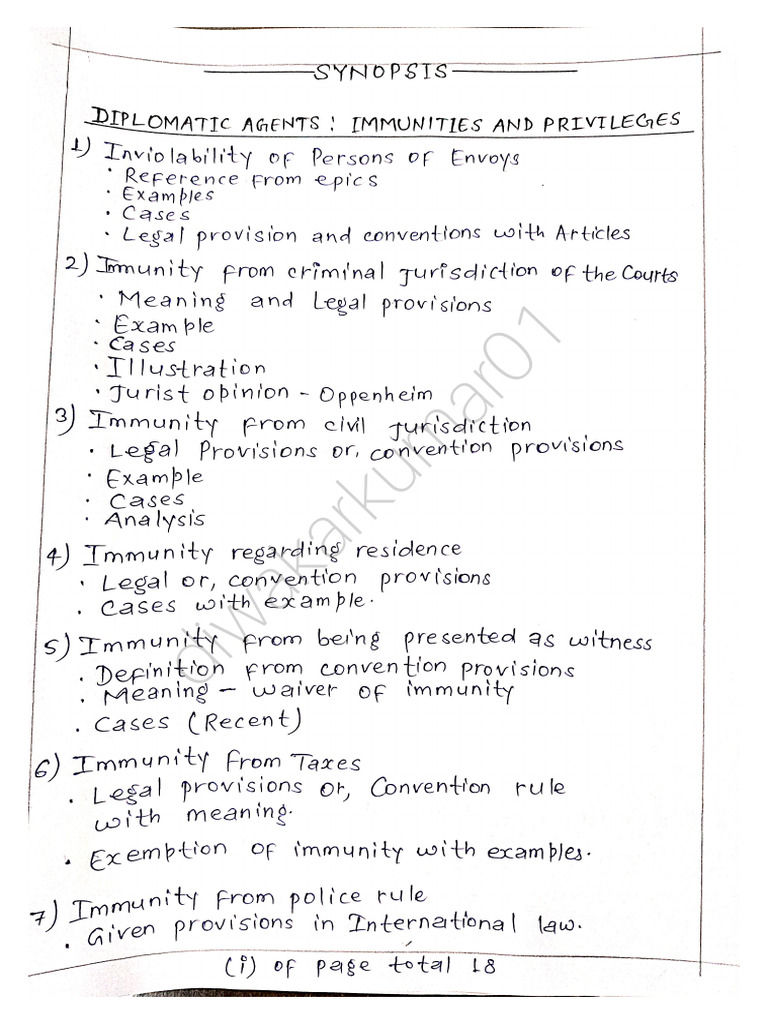 SYNOPSIS
DIPLOMATIC AGENTS: IMMUNITIES AND PRIVILEGES
1) Inviolability of Persons of Envoys
· Reference from epics
· Examples
· Cases
· Legal provision and conventions with Articles
2) Immunity from criminal jurisdiction of the Courts
· Meaning and Legal provisions
· Example
· Cases
· Illustration
· Jurist opinion - Oppenheim
3) Immunity from civil jurisdiction
· Legal Provisions or, convention provisions
· Example
· Cases
· Analysis
4) Immunity regarding residence
· Legal or, convention provisions
· Cases with example.
5) Immunity from being presented as witness
· Definition from convention provisions
· Meaning - waiver of immunity
· Cases (Recent)
6) Immunity from Taxes
· Legal provisions or, Convention rule
with meaning.
· Exemption of immunity with examples.
7) Immunity from police rule
· Given provisions in International law.
(i) of page total 18
diwakarkumar01